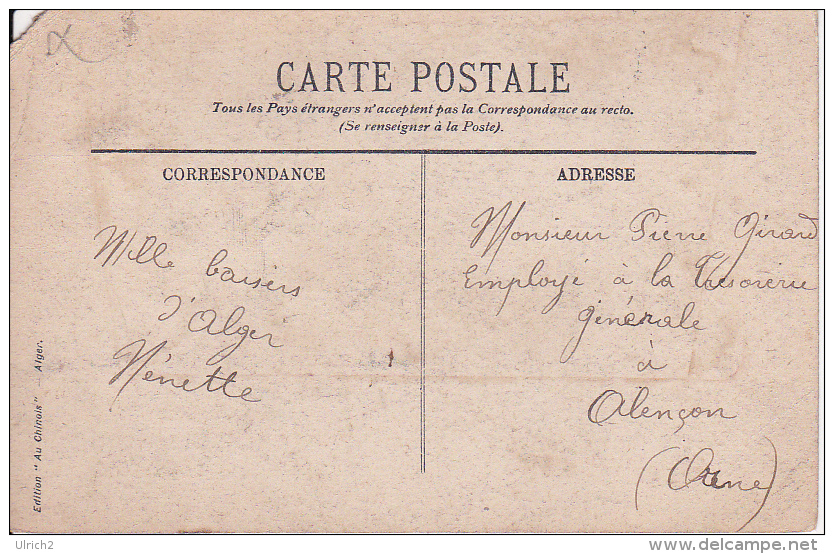 CARTE POSTALE
Tous les Pays étrangers n'acceptent pas la Correspondance au recto.
(Se renseigner à la Poste).
CORRESPONDANCE
Mille baisers
d'Alger
Nénette
ADRESSE
Monsieur Pierre Girard
Employé à la Trésorerie
générale
à
Alençon
(Orne)
Edition "Au Chinois" — Alger.
Ulrich2
delcampe.net